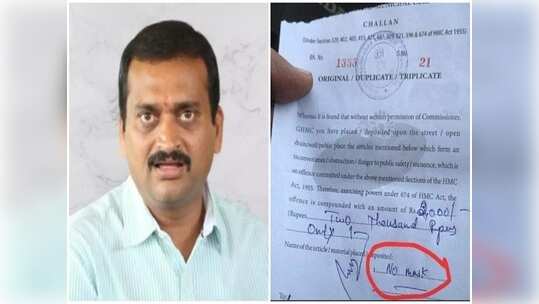 CHALLAN
(Under Section
Bk. No 1333 21
ORIGINAL / DUPLICATE / TRIPLICATE
Whereas it is found that without written permission of Commissioner,
GHMC you have placed / deposited upon the street / open
drain/well/public place the articles mentioned below which form an
inconvenience / obstruction / danger to public safety / nuisance, which is
an offence committed under the above mentioned Sections of the HMC
Act, 1955. Therefore, exercising powers under 674 of HMC Act, the
offence is compounded with an amount of Rs. 2,000/-
(Rupees Two Thousand Rupees
Only
Name of the article / material placed / deposited:
No mask